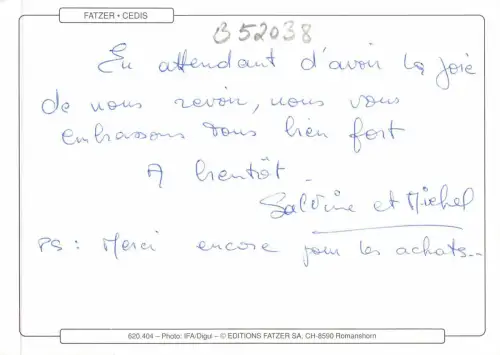 FATZER • CEDIS
B 52038
En attendant d'avoir la joie
de nous revoir, nous vous
embrassons tous bien fort
A bientôt
et Michel
PS : Merci encore pour les achats...
620.404 – Photo: IFA/Digul – © EDITIONS FATZER SA, CH-8590 Romanshorn